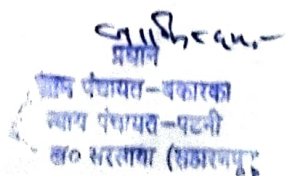 प्रधान
ग्राम पंचायत-बकारका
न्याय पंचायत-पटनी
ब्ला० सरसावा (सहारनपुर)